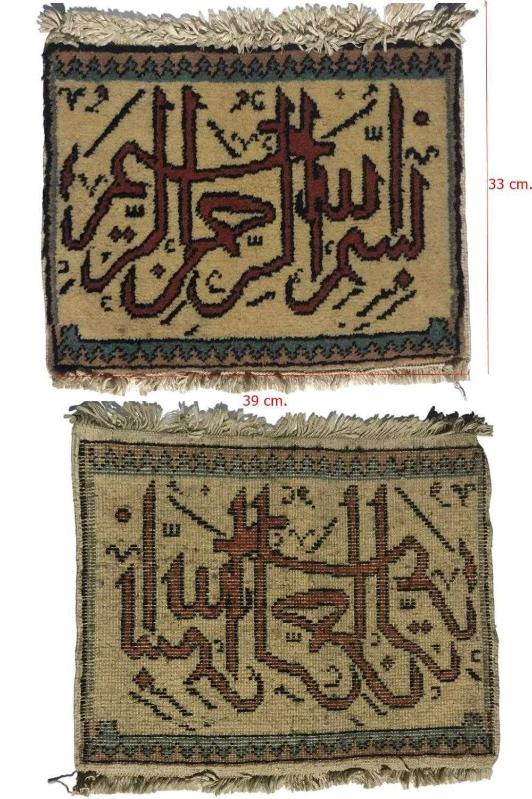 بسم الله الرحمن الرحيم
33 cm.
39 cm.